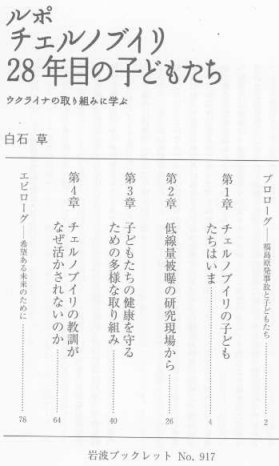 ルポ
チェルノブイリ
28年目の子どもたち
ウクライナの取り組みに学ぶ
白石 草
プロローグ――福島原発事故と子どもたち………… 2
第1章 チェルノブイリの子ども
たちはいま………… 4
第2章 低線量被曝の研究現場から………… 26
第3章 子どもたちの健康を守る
ための多様な取り組み………… 40
第4章 チェルノブイリの教訓が
なぜ活かされないのか………… 64
エピローグ――希望ある未来のために………… 78
岩波ブックレット No. 917